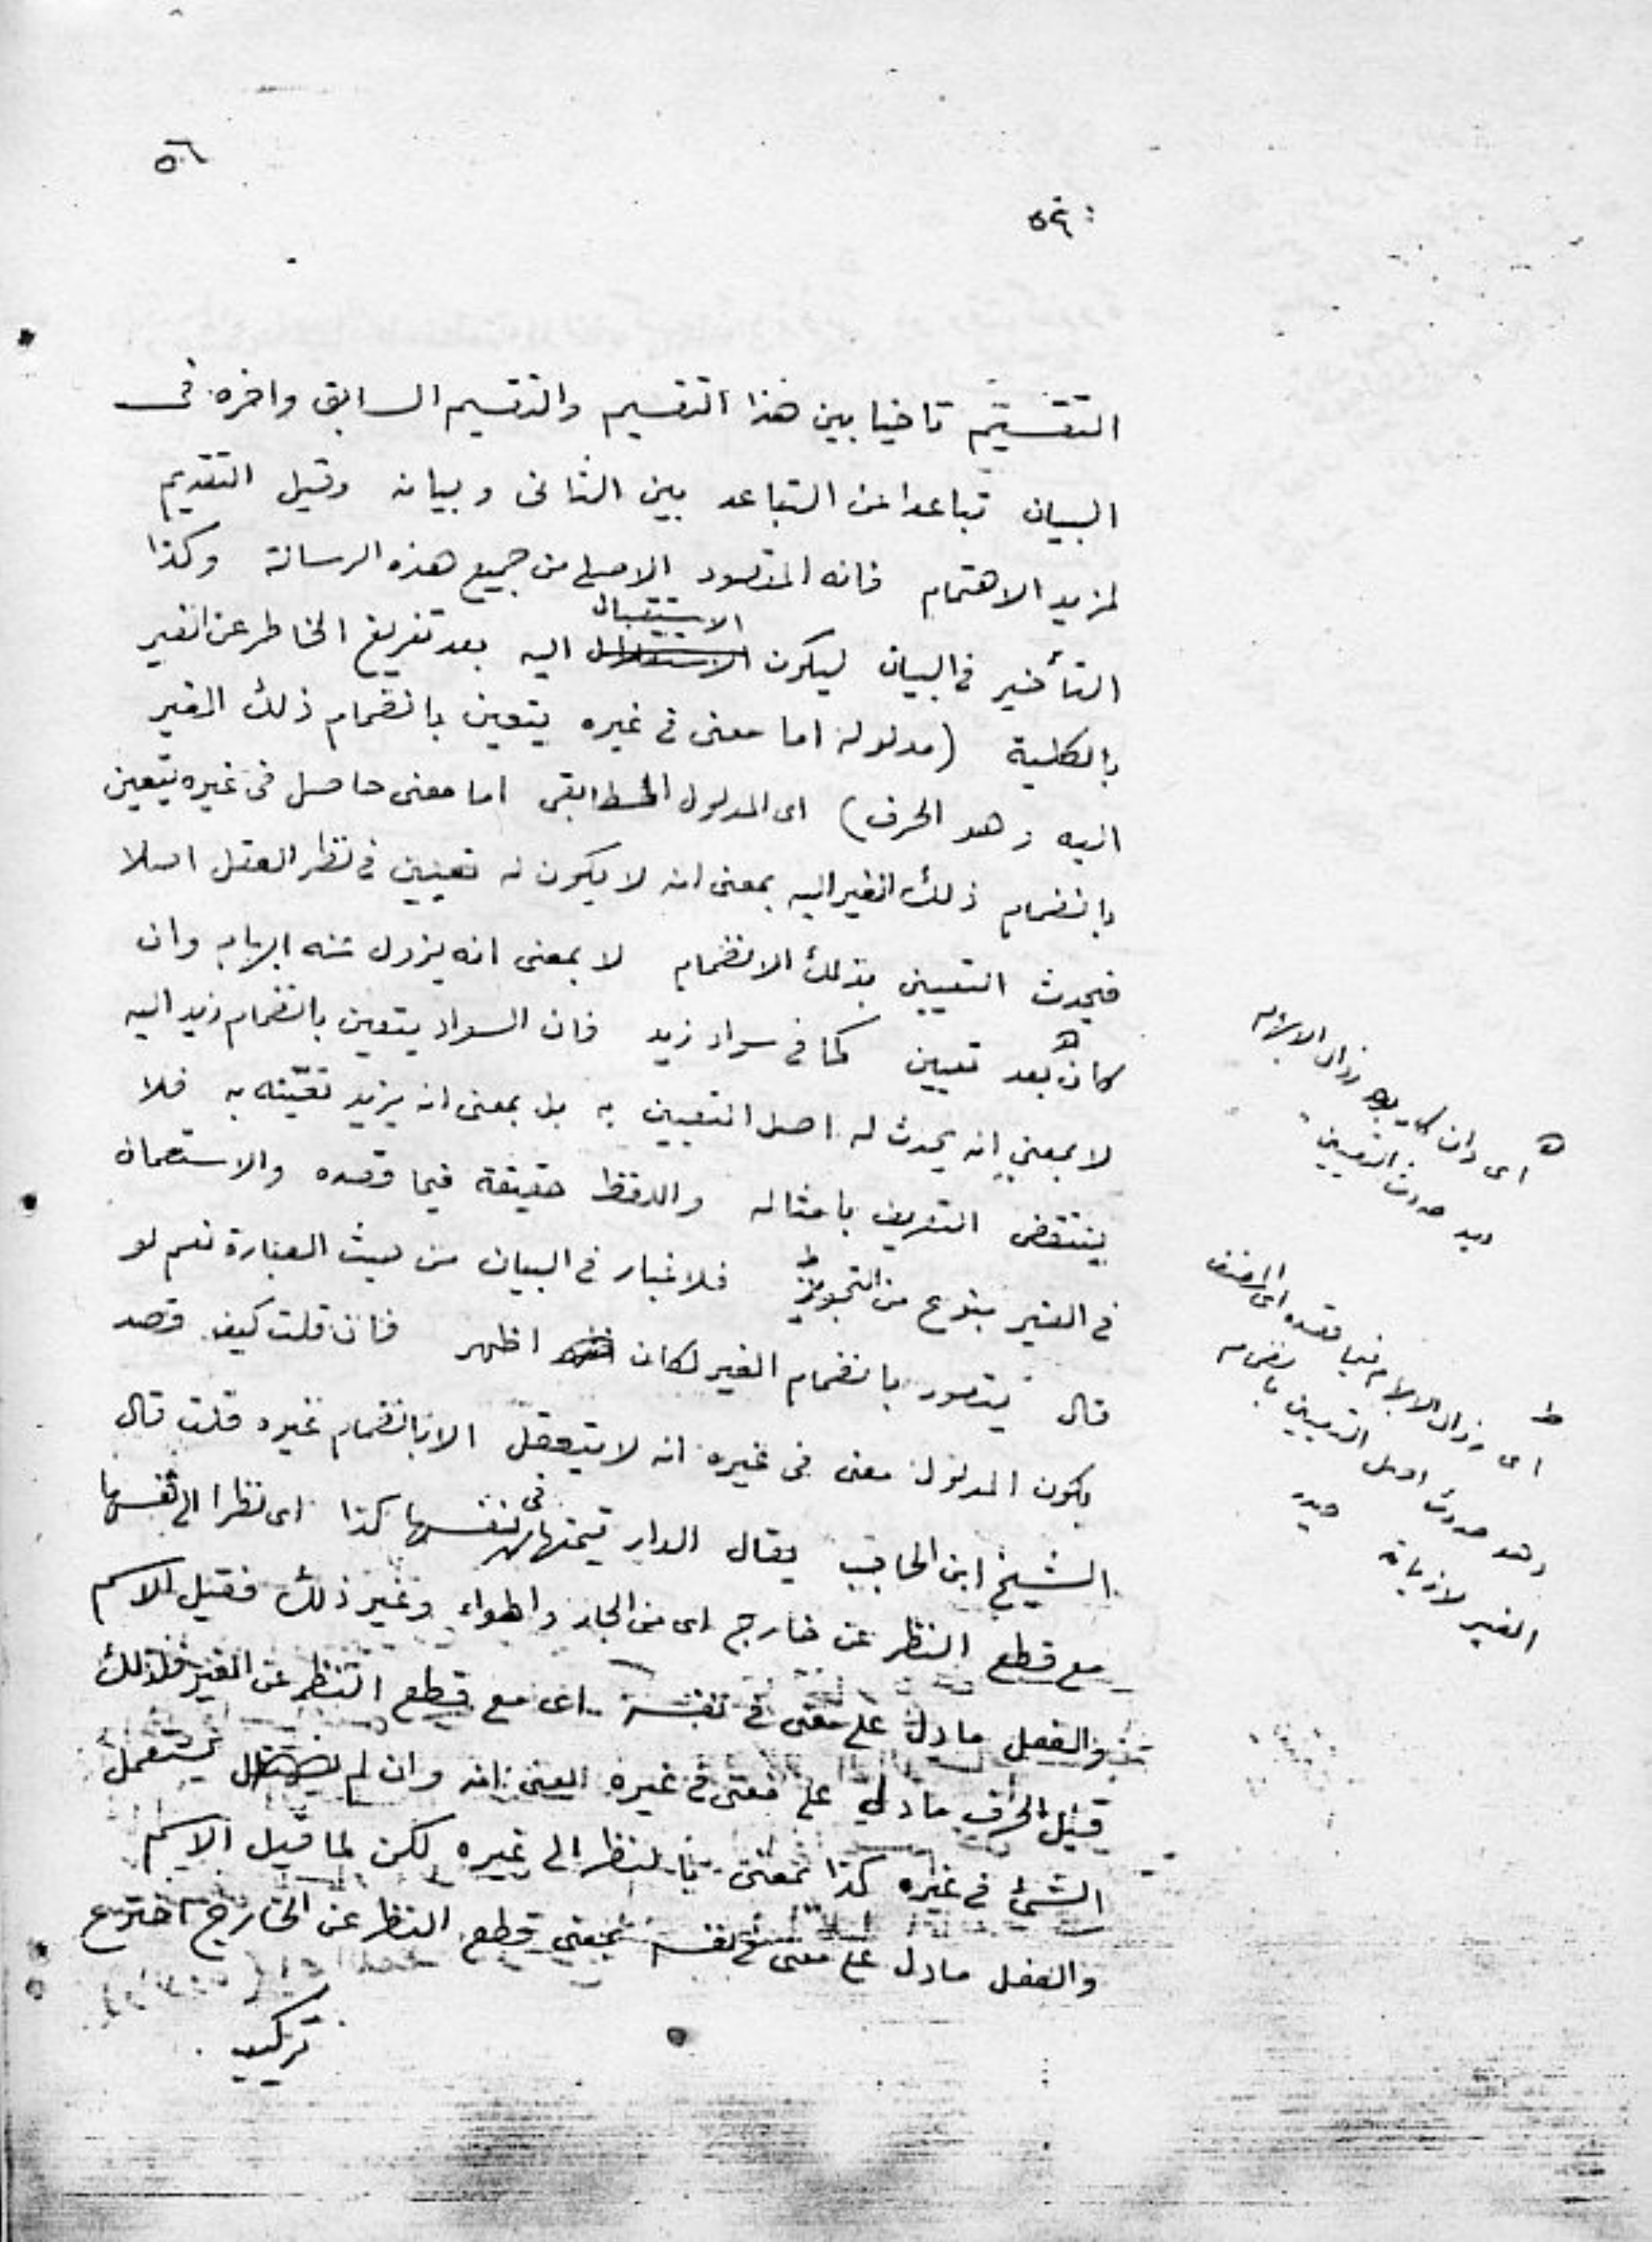 ٥٦
٥٩
التقسيم تاخيا بين هذا التقسيم والتقسيم السابق واخره فى
البيان تباعدا عن التباعد بين الثانى وبيانه وقيل التقديم
لمزيد الاهتمام فانه المقصود الاصلى من جميع هذه الرسالة وكذا
التأخير فى البيان ليكون الاستقبال اليه بعد تفريغ الخاطر عن الغير
بالكلية (مدلوله اما معنى فى غيره يتعين بانضمام ذلك الغير
اليه وهو الحرف) اى المدلول المطابقى اما معنى حاصل فى غيره يتعين
بانضمام ذلك الغير اليه بمعنى انه لا يكون له تعيين فى نظر العقل اصلا
فيحدث التعيين بذلك الانضمام لا بمعنى انه يزول عنه ابهام وان
كان بعد تعيين كما فى سواد زيد فان السواد يتعين بانضمام زيد اليه
لا بمعنى انه يحدث له اصل التعيين به بل بمعنى انه يزيد تعينه به فلا
ينتقض التعريف بامثاله واللفظ حقيقة فيما قصده والاستعمال
فى الغير بنوع من التجويز فلا غبار فى البيان من حيث العبارة نعم لو
قال يتصور بانضمام الغير لكان اظهر فان قلت كيف قصد
بكون المدلول معنى فى غيره انه لا يتعقل الا بانضمام غيره قلت قال
الشيخ ابن الحاجب يقال الدار قيمتها فى نفسها كذا اى نظرا الى نفسها
مع قطع النظر عن خارج اى من الجار والهواء وغير ذلك فقيل الاسم
والفعل مادل على معنى فى نفسه اى مع قطع النظر عن الغير فلذلك
قيل الحرف مادل على معنى فى غيره اعنى انه وان لم يستعمل
الشئ فى غيره كذا بمعنى بالنظر الى غيره لكن لما قيل الاسم
والفعل مادل على معنى فى نفسه بمعنى قطع النظر عن الخارج اخترع
تركيب
اى وان كان بعد زوال الابهام
بعد حدوث التعيين
اى زوال الابهام فيما قصده اى المصنف
وهو حدوث اصل التعيين بانضمام
الغير لا زيادته